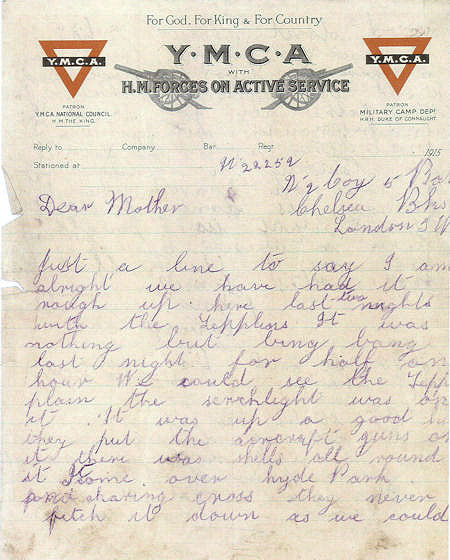 For God. For King & For Country
Y.M.C.A.
Y·M·C·A
Y.M.C.A.
WITH
H.M. FORCES ON ACTIVE SERVICE
PATRON
Y.M.C.A. NATIONAL COUNCIL
H.M. THE KING.
PATRON
MILITARY CAMP DEPT
H.R.H. DUKE OF CONNAUGHT.
Reply to Company Bat. Regt. 1915
Stationed at N 22259
N 2 Coy 5
Dear Mother Chelsea
London S W
Just a line to say I am
alright we have had it
rough up here last two nights
with the Zepplins It was
nothing but bing bang
last night for half an
hour We could see the Zepp
plain the serchlight was on
it . It was up a good
they put the aircraft guns on
it there was shells all round
it It some over hyde Park
and sharing cross they never
fetch it down as we could